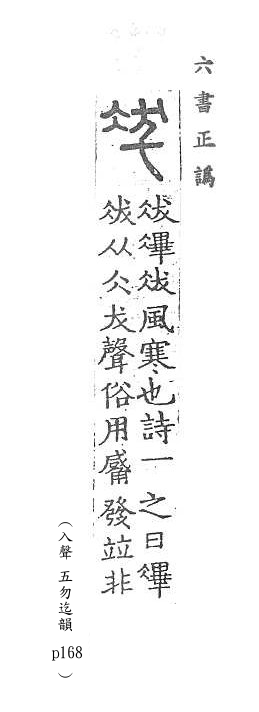 六書正譌
冹
冹㓖冹風寒也詩一之日㓖
冹从仌犮聲俗用觱發竝非
（入聲 五勿迄韻 p168）